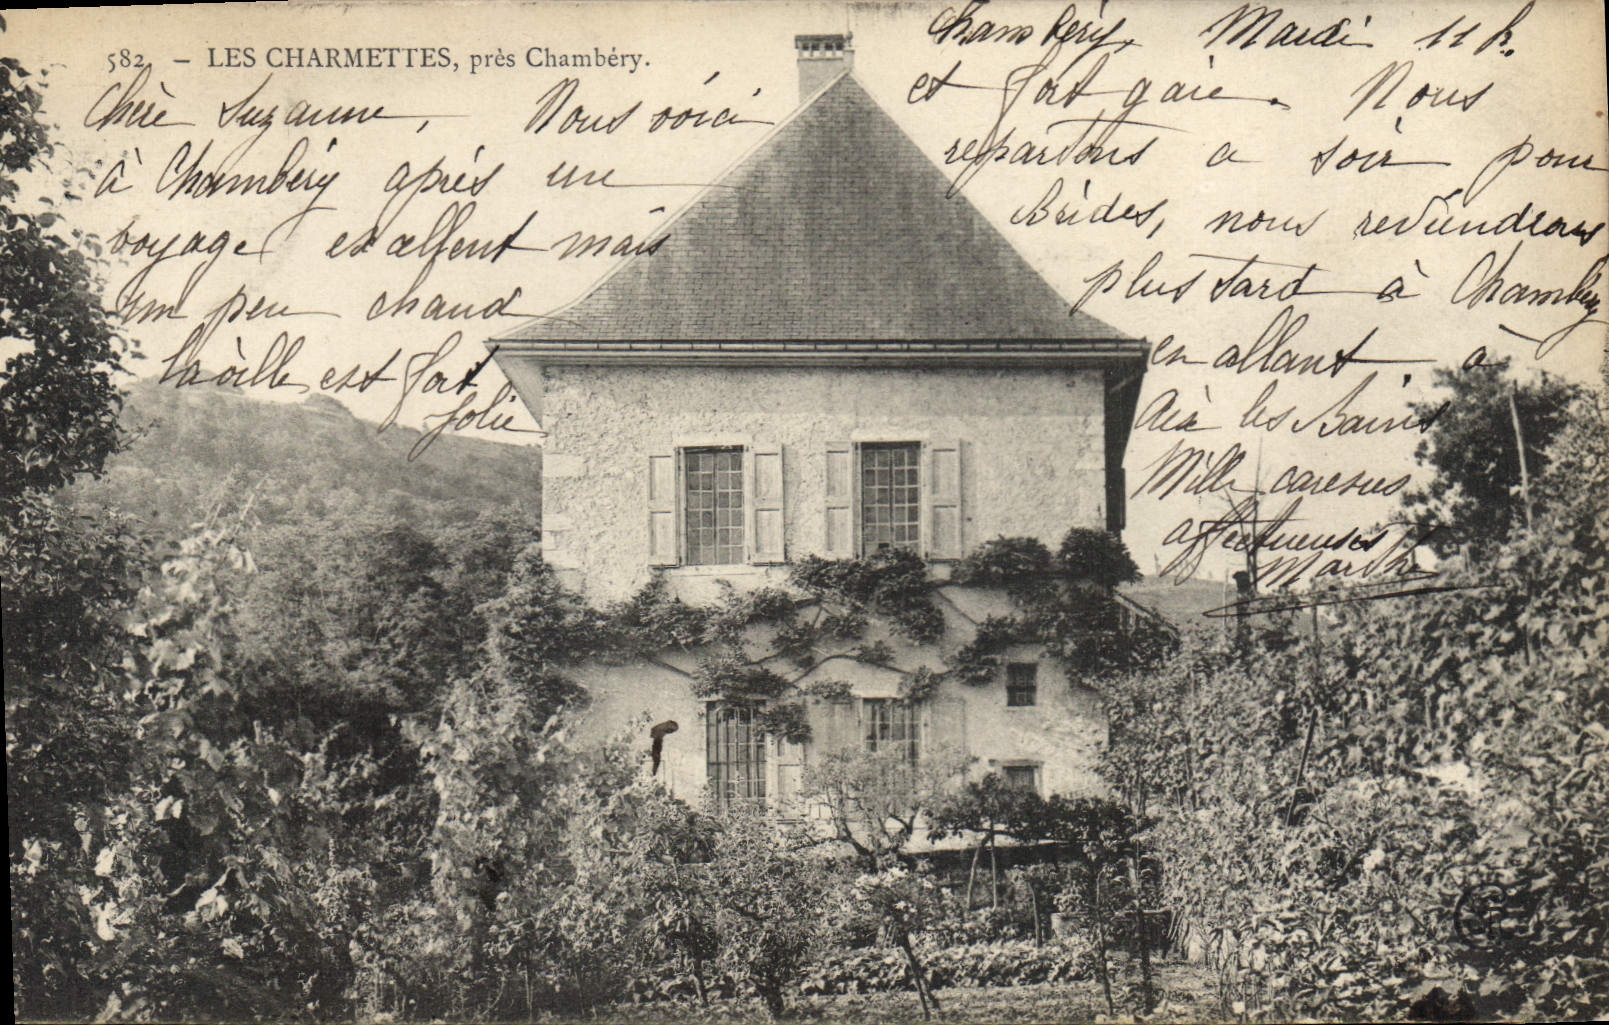 582. — LES CHARMETTES, près Chambéry.
Chambéry, Mardi 11 h.
Chère Suzanne, Nous voici
à Chambéry après un
voyage excellent mais
un peu chaud
la ville est fort
jolie
et fort gaie. Nous
repartons ce soir pour
Brides, nous reviendrons
plus tard à Chambéry
en allant à
Aix les Bains
Mille caresses
affectueuses
Marthe